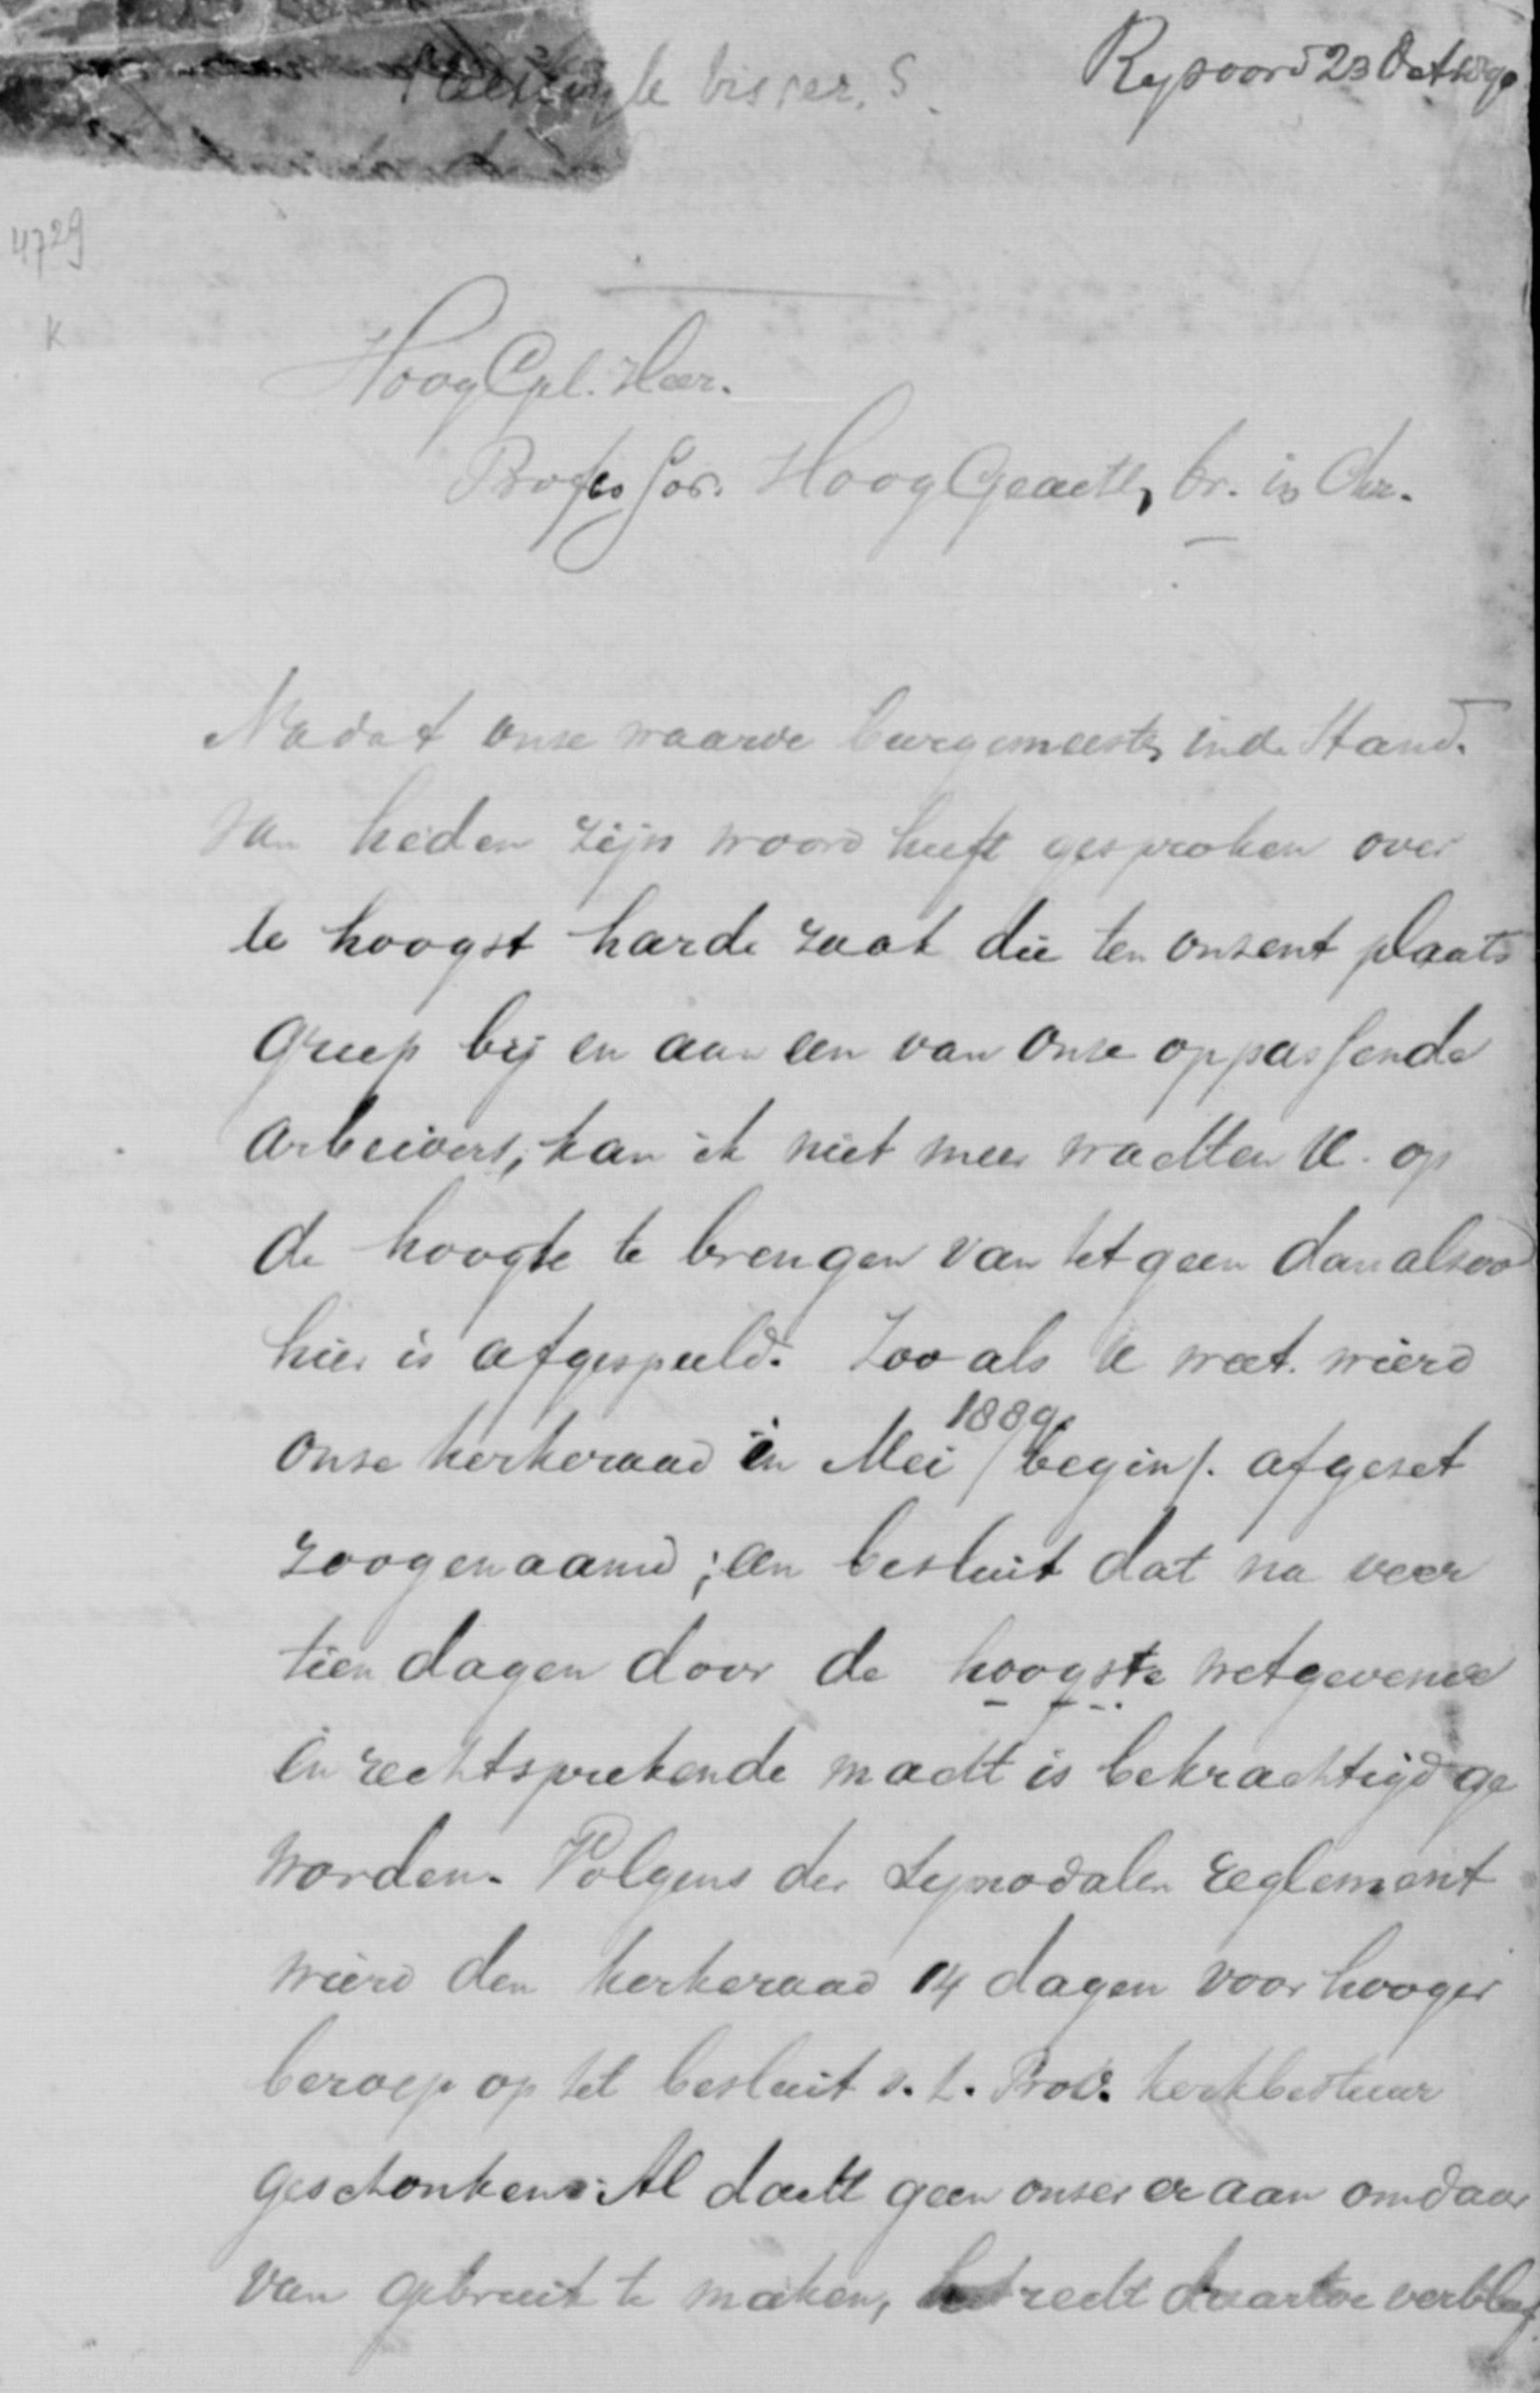 Rysoord 23 Oct 1890
4729
K
HoogEgl. Heer.
Professor. HoogGeacht, br. in Chr.
Nadat onse waarde burgemeester in de Stand.
van heden zijn woord heeft gesproken over
de hoogst harde zaak die ten onsent plaats
greep bij en aan een van onse oppassende
arbeiders, kan ik niet meer wachten U. op
de hoogte te brengen van hetgeen dan alsoo
hier is afgespeeld. Zoo als U weet. wierd
onse kerkeraad in Mei 1889. /begin/. afgeset
zoogenaamd; een besluit dat na veer
tien dagen door de hoogste wetgevende
en rechtsprekende macht is bekrachtigd ge
worden. Volgens der Synodalen reglement
wierd den kerkeraad 14 dagen voor hooger
beroep op het besluit v. h. Prov. kerkbestuur
geschonken. Al dacht geen onser er aan om daar
van gebruik te maken, het recht daartoe verbleef